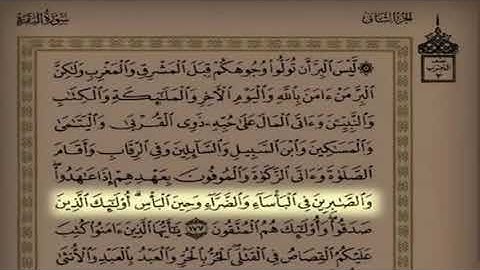 سورة البقرة
الجزء الثاني
۞ لَيْسَ ٱلْبِرَّ أَن تُوَلُّوا۟ وُجُوهَكُمْ قِبَلَ ٱلْمَشْرِقِ وَٱلْمَغْرِبِ وَلَٰكِنَّ
ٱلْبِرَّ مَنْ ءَامَنَ بِٱللَّهِ وَٱلْيَوْمِ ٱلْءَاخِرِ وَٱلْمَلَٰٓئِكَةِ وَٱلْكِتَٰبِ
وَٱلنَّبِيِّۦنَ وَءَاتَى ٱلْمَالَ عَلَىٰ حُبِّهِۦ ذَوِى ٱلْقُرْبَىٰ وَٱلْيَتَٰمَىٰ
وَٱلْمَسَٰكِينَ وَٱبْنَ ٱلسَّبِيلِ وَٱلسَّآئِلِينَ وَفِى ٱلرِّقَابِ وَأَقَامَ
ٱلصَّلَوٰةَ وَءَاتَى ٱلزَّكَوٰةَ وَٱلْمُوفُونَ بِعَهْدِهِمْ إِذَا عَٰهَدُوا۟
وَٱلصَّٰبِرِينَ فِى ٱلْبَأْسَآءِ وَٱلضَّرَّآءِ وَحِينَ ٱلْبَأْسِ أُو۟لَٰٓئِكَ ٱلَّذِينَ
صَدَقُوا۟ وَأُو۟لَٰٓئِكَ هُمُ ٱلْمُتَّقُونَ ١٧٧ يَٰٓأَيُّهَا ٱلَّذِينَ ءَامَنُوا۟ كُتِبَ
عَلَيْكُمُ ٱلْقِصَاصُ فِى ٱلْقَتْلَى ٱلْحُرُّ بِٱلْحُرِّ وَٱلْعَبْدُ بِٱلْعَبْدِ وَٱلْأُنثَىٰ